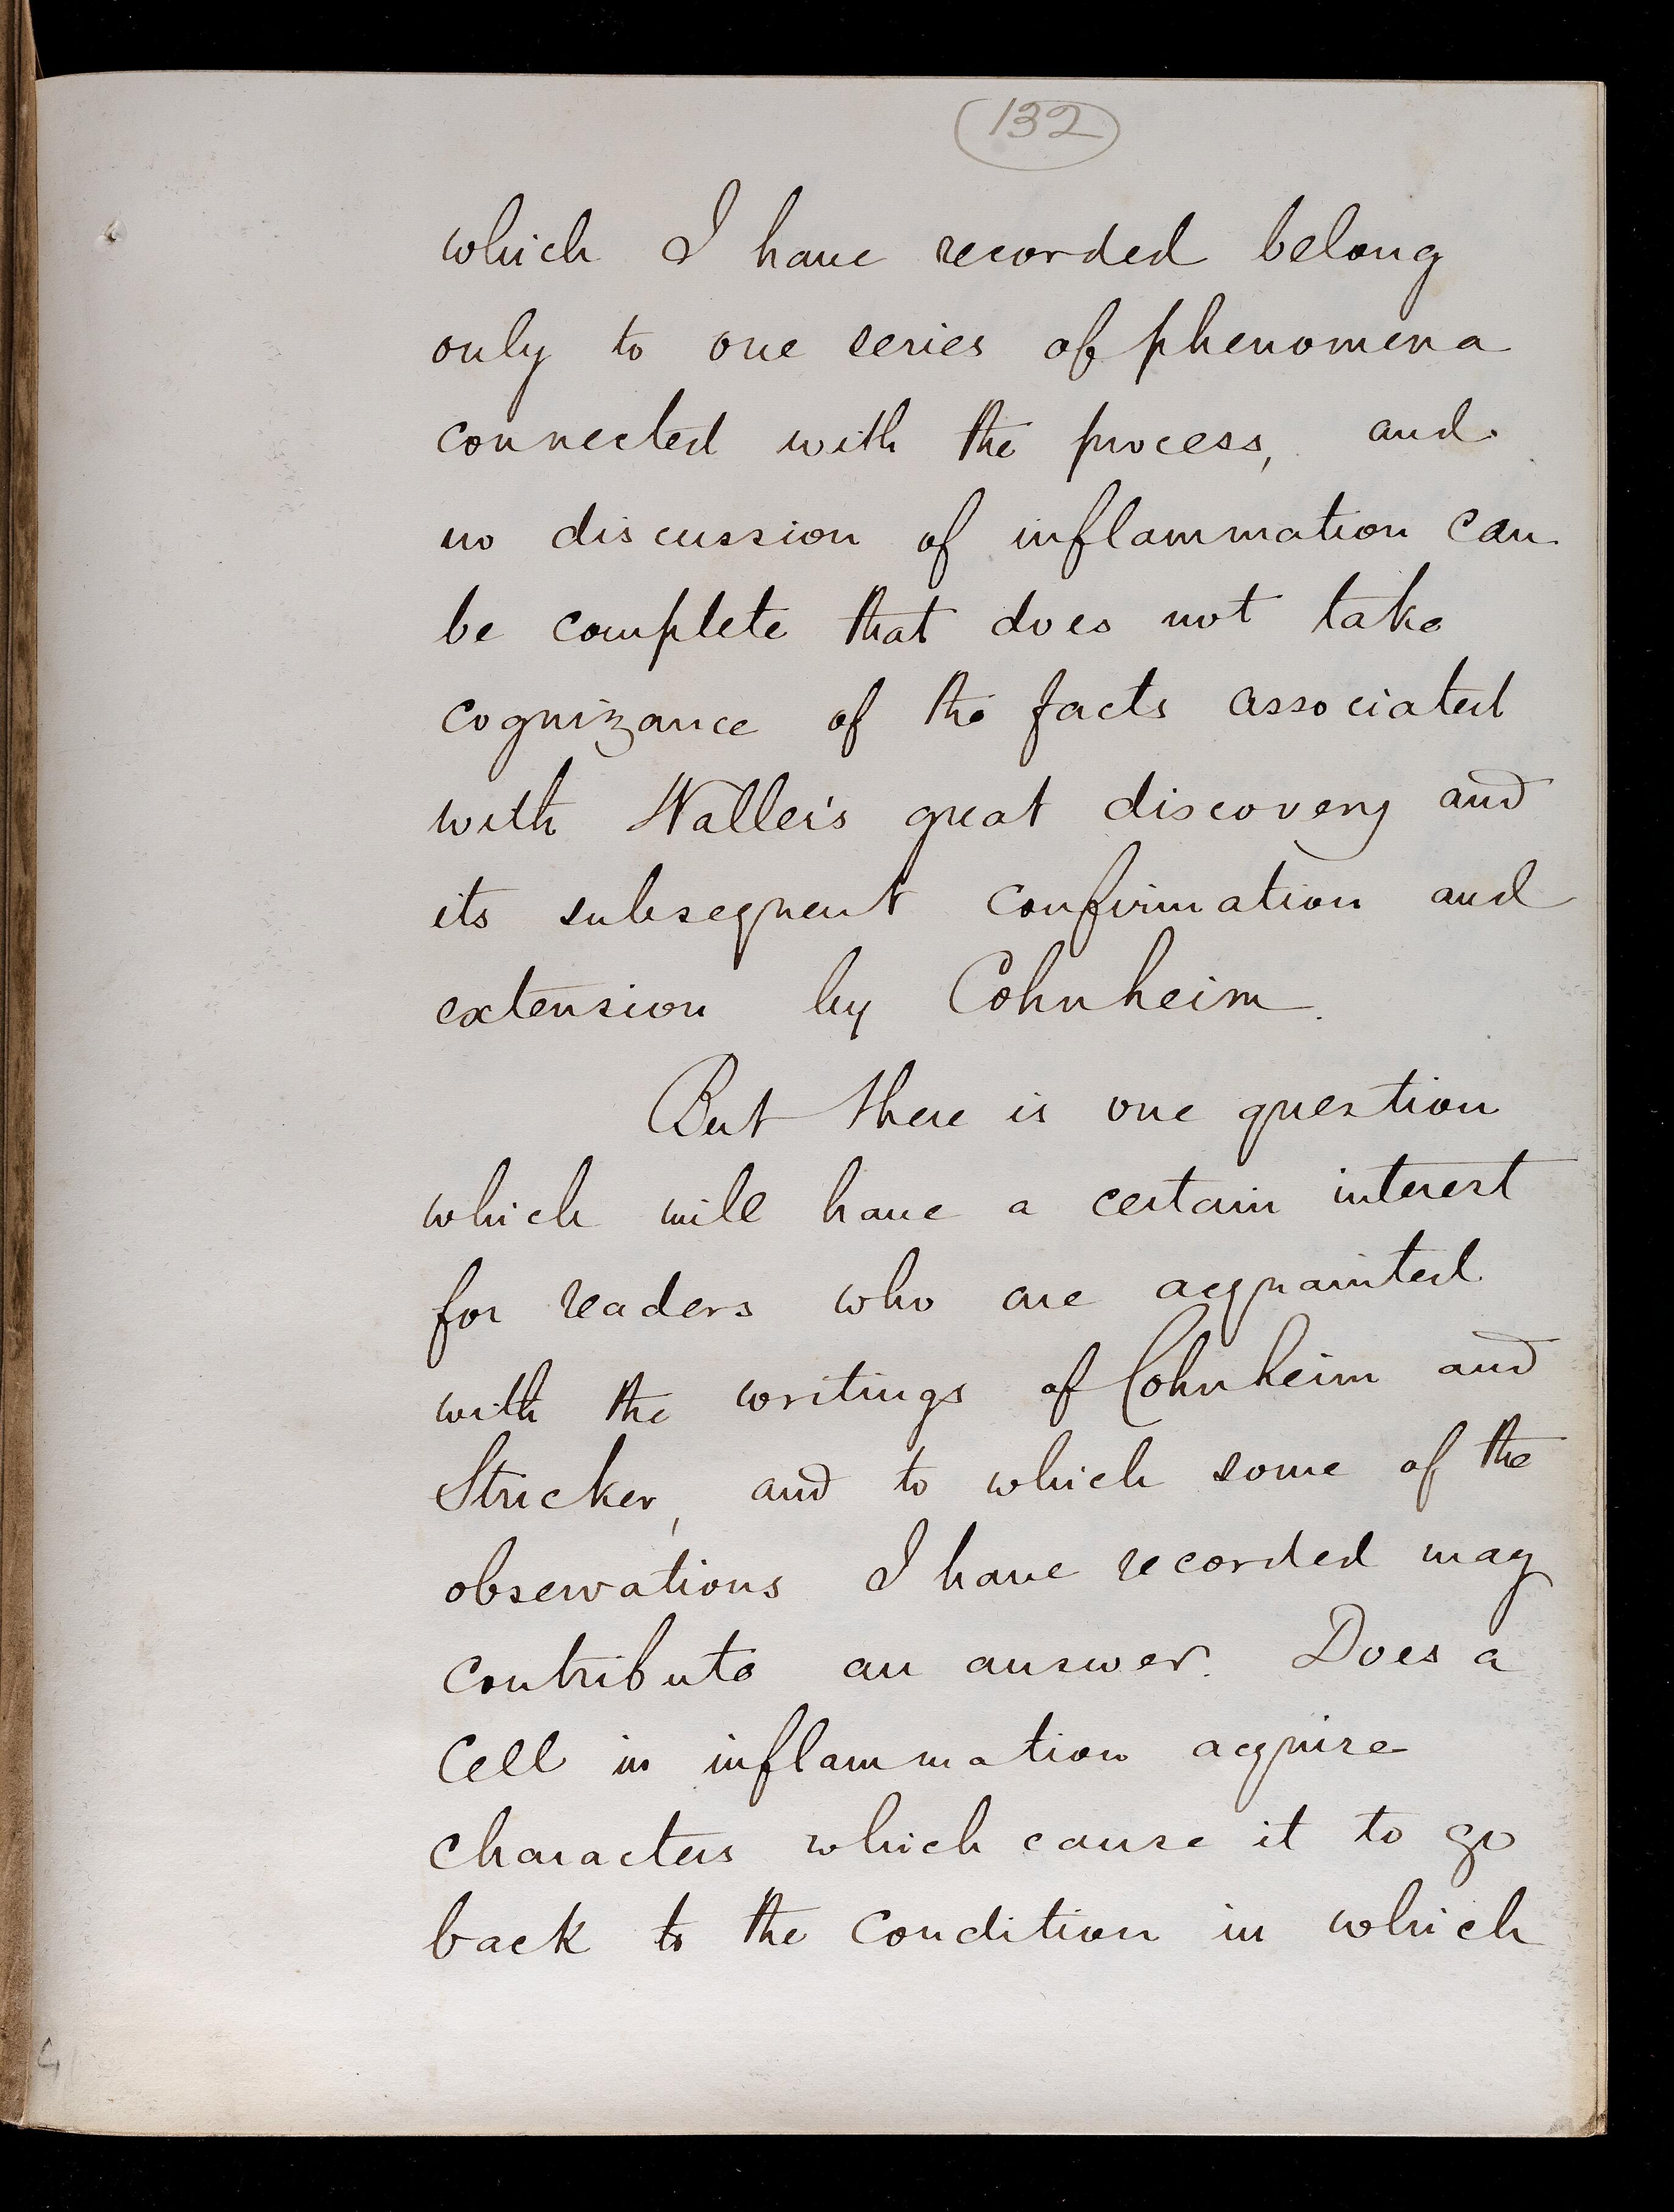 132
which I have recorded belong
only to one series of phenomena
connected with the process, and
no discussion of inflammation can
be complete that does not take
cognizance of the facts associated
with Waller's great discovery and
its subsequent confirmation and
extension by Cohnheim.
But there is one question
which will have a certain interest
for readers who are acquainted
with the writings of Cohnheim and
Stricker, and to which some of the
observations I have recorded may
contribute an answer. Does a
Cell in inflammation acquire
characters which cause it to go
back to the condition in which